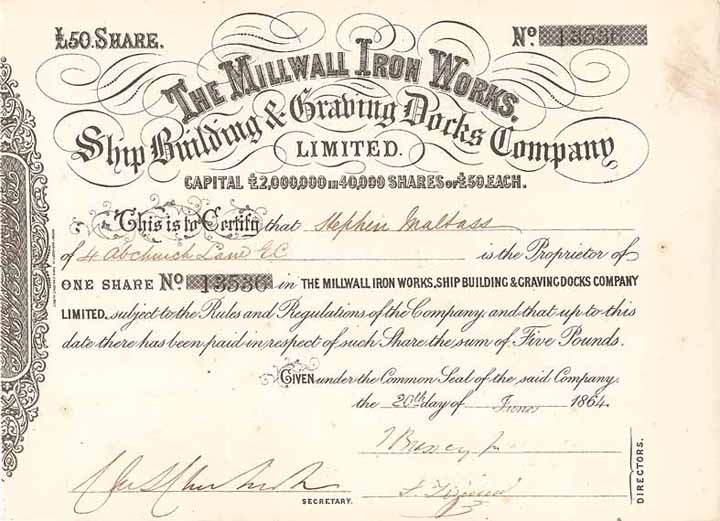 £50. SHARE.
No. 13536
THE MILLWALL IRON WORKS.
Ship Building & Graving Docks Company
LIMITED.
CAPITAL £2,000,000 IN 40,000 SHARES OF £50. EACH.
This is to Certify that Stephen Maltass
of 4 Abchurch Lane E.C is the Proprietor of
ONE SHARE No 13536 in THE MILLWALL IRON WORKS, SHIP BUILDING & GRAVING DOCKS COMPANY
LIMITED. subject to the Rules and Regulations of the Company and that up to this
date there has been paid in respect of such Share the sum of Five Pounds.
GIVEN under the Common Seal of the said Company.
the 20th day of June 1864.
SECRETARY.
DIRECTORS.